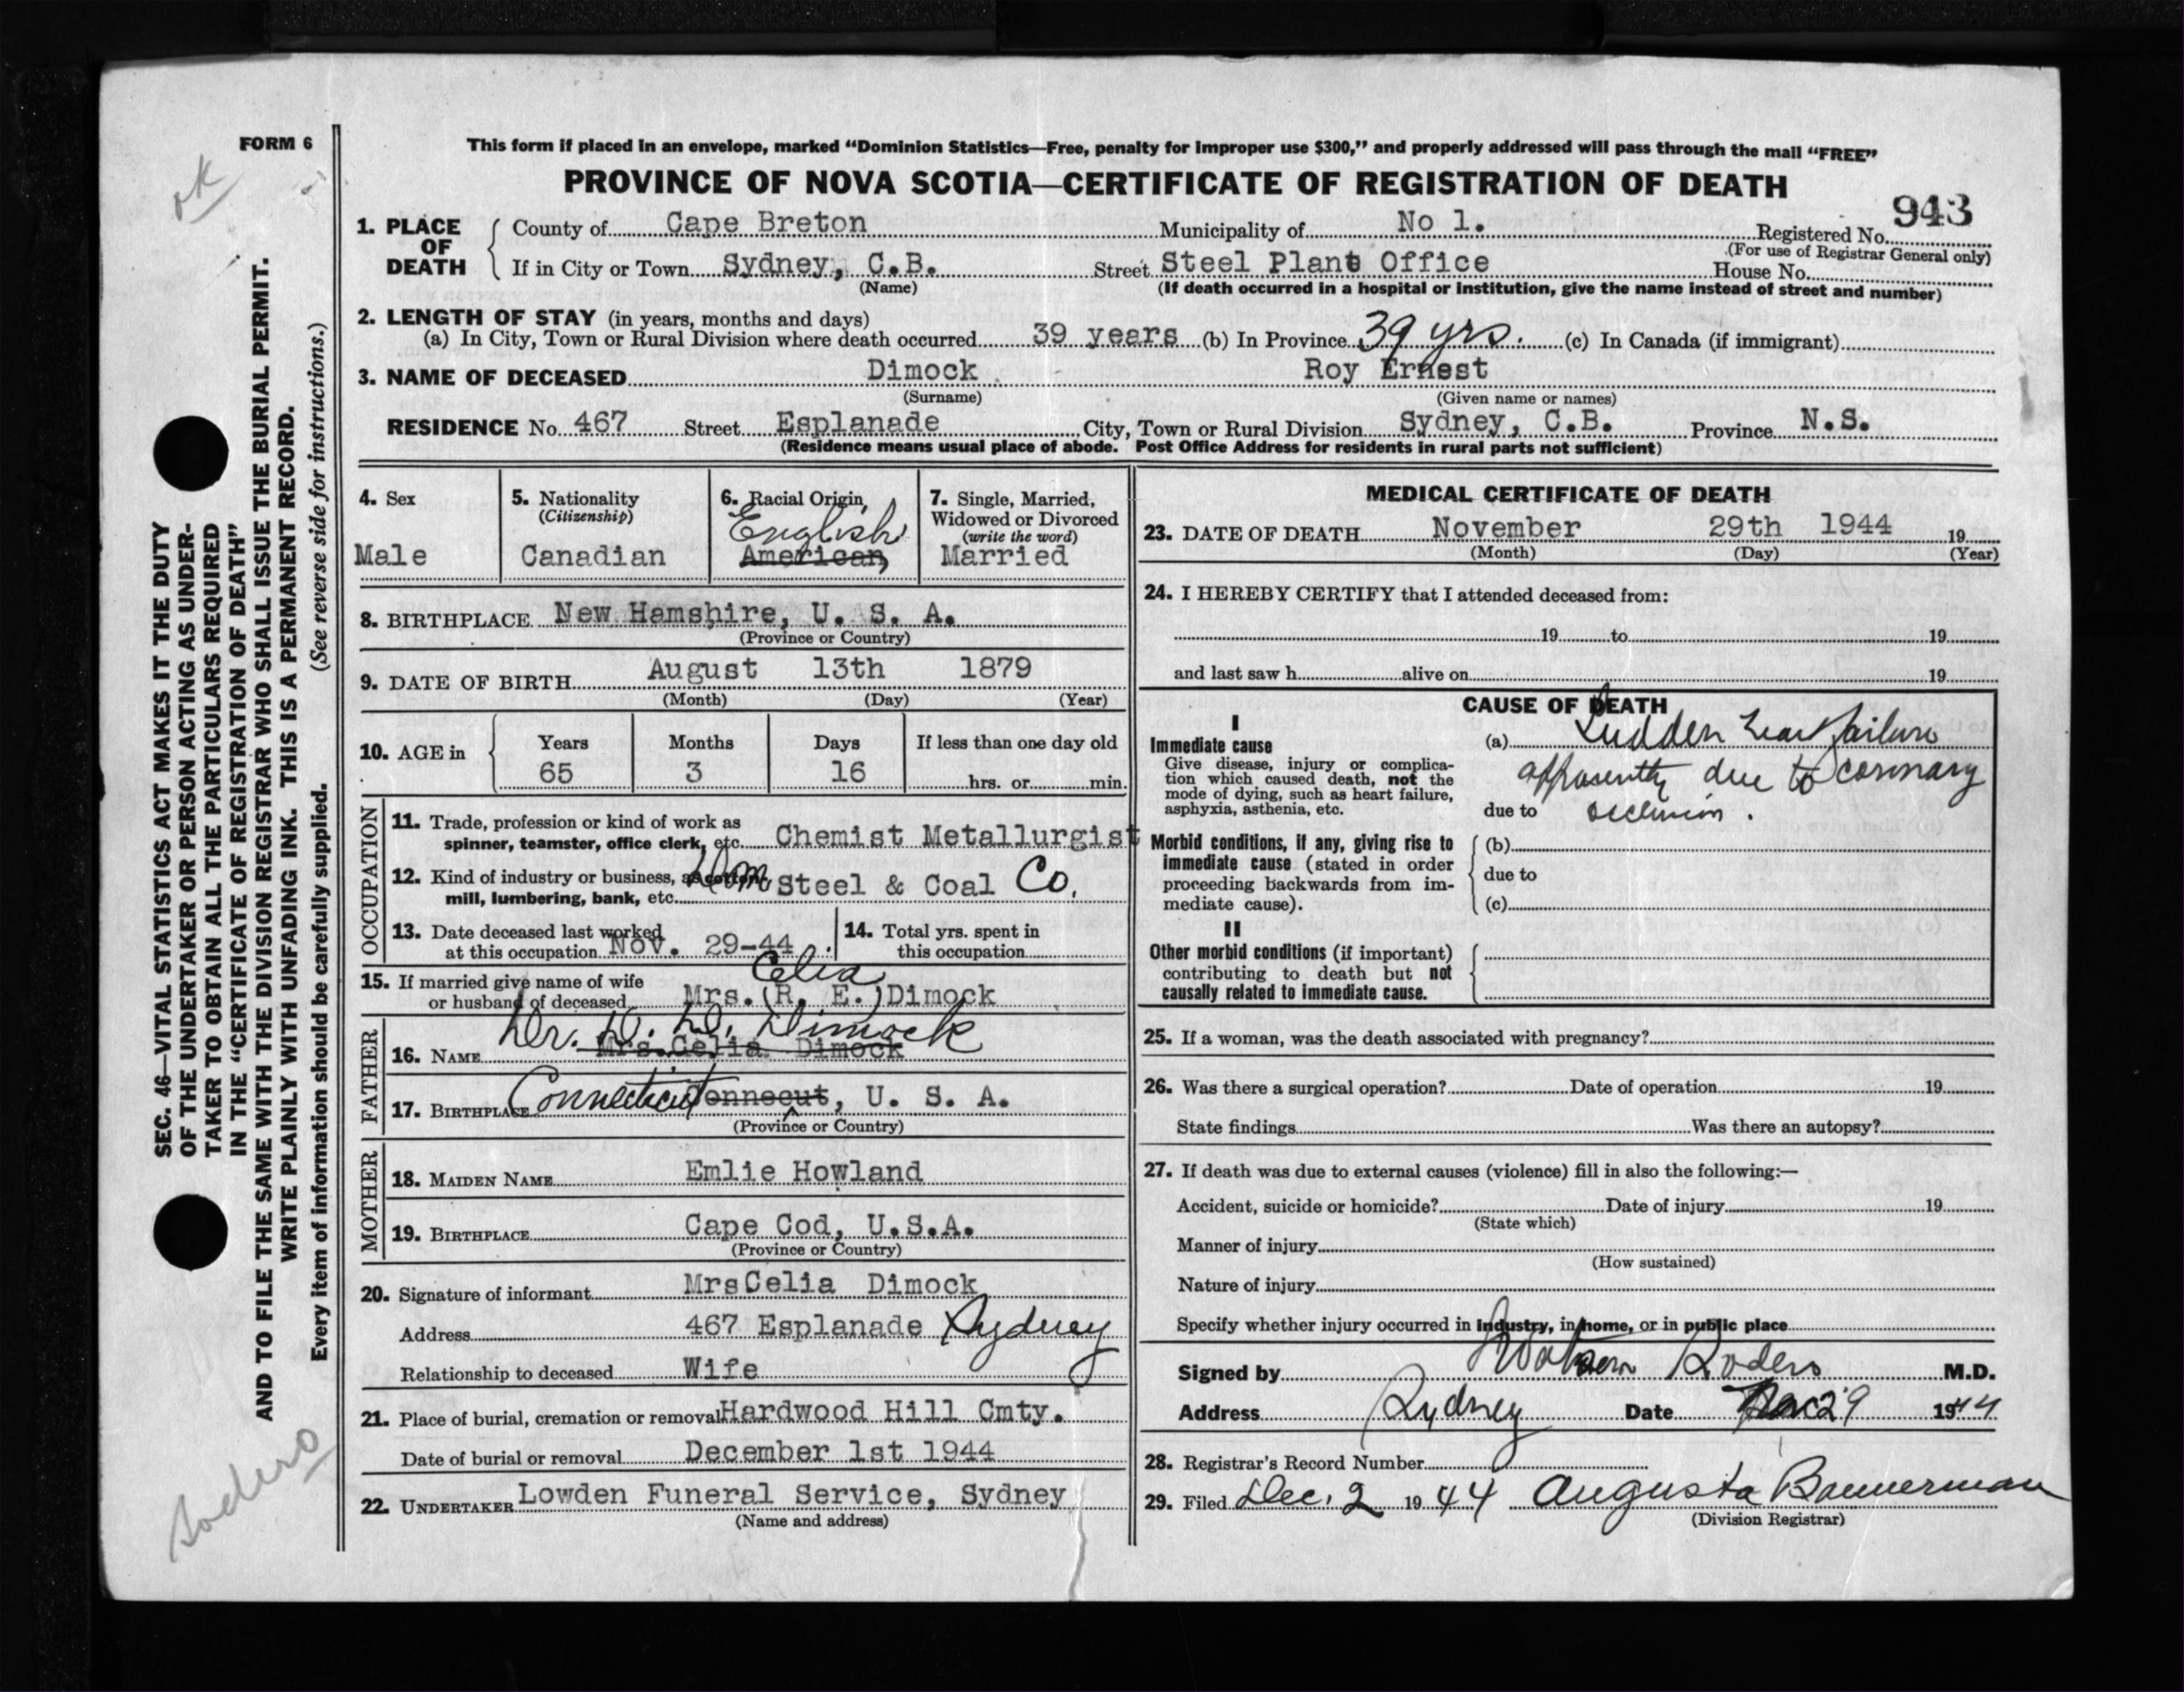 FORM 6
ok
This form if placed in an envelope, marked “Dominion Statistics—Free, penalty for improper use $300,” and properly addressed will pass through the mail “FREE”
PROVINCE OF NOVA SCOTIA—CERTIFICATE OF REGISTRATION OF DEATH
943
1. PLACE OF DEATH
County of Cape Breton Municipality of No 1. Registered No.
(For use of Registrar General only)
If in City or Town Sydney, C.B. Street Steel Plant Office House No.
(Name) (If death occurred in a hospital or institution, give the name instead of street and number)
2. LENGTH OF STAY (in years, months and days)
(a) In City, Town or Rural Division where death occurred 39 years (b) In Province 39 yrs. (c) In Canada (if immigrant)
3. NAME OF DECEASED Dimock Roy Ernest
(Surname) (Given name or names)
RESIDENCE No. 467 Street Esplanade City, Town or Rural Division Sydney, C.B. Province N.S.
(Residence means usual place of abode. Post Office Address for residents in rural parts not sufficient)
4. Sex
Male
5. Nationality
(Citizenship)
Canadian
6. Racial Origin
English
American
7. Single, Married,
Widowed or Divorced
(write the word)
Married
8. BIRTHPLACE New Hamshire, U. S. A.
(Province or Country)
9. DATE OF BIRTH August 13th 1879
(Month) (Day) (Year)
10. AGE in
Years Months Days If less than one day old
65 3 16 hrs. or min.
OCCUPATION
11. Trade, profession or kind of work as
spinner, teamster, office clerk, etc. Chemist Metallurgist
12. Kind of industry or business, as cotton Dom Steel & Coal Co.
mill, lumbering, bank, etc.
13. Date deceased last worked
at this occupation Nov. 29-44
14. Total yrs. spent in
this occupation
15. If married give name of wife Celia
or husband of deceased Mrs. (R. E.) Dimock
FATHER
Dr. Dimock
16. NAME Mrs. Celia Dimock
17. BIRTHPLACE Connecticut Connecut, U. S. A.
(Province or Country)
MOTHER
18. MAIDEN NAME Emlie Howland
19. BIRTHPLACE Cape Cod, U.S.A.
(Province or Country)
20. Signature of informant MrsCelia Dimock
Address 467 Esplanade Sydney
Relationship to deceased Wife
21. Place of burial, cremation or removal Hardwood Hill Cmty.
Date of burial or removal December 1st 1944
22. UNDERTAKER Lowden Funeral Service, Sydney
(Name and address)
MEDICAL CERTIFICATE OF DEATH
23. DATE OF DEATH November 29th 1944 19
(Month) (Day) (Year)
24. I HEREBY CERTIFY that I attended deceased from:
19 to 19
and last saw h alive on 19
CAUSE OF DEATH
I
Immediate cause
Give disease, injury or complica-
tion which caused death, not the
mode of dying, such as heart failure,
asphyxia, asthenia, etc.
(a) Sudden heart failure
apparently due to coronary
due to occlusion.
Morbid conditions, if any, giving rise to
immediate cause (stated in order
proceeding backwards from im-
mediate cause).
(b)
due to
(c)
II
Other morbid conditions (if important)
contributing to death but not
causally related to immediate cause.
25. If a woman, was the death associated with pregnancy?
26. Was there a surgical operation? Date of operation 19
State findings Was there an autopsy?
27. If death was due to external causes (violence) fill in also the following:—
Accident, suicide or homicide? Date of injury 19
(State which)
Manner of injury
(How sustained)
Nature of injury
Specify whether injury occurred in industry, in home, or in public place
Signed by M.D.
Address Sydney Date Nov 29 1944
28. Registrar's Record Number
29. Filed Dec. 2 1944 Augusta Bannerman
(Division Registrar)
SEC. 46—VITAL STATISTICS ACT MAKES IT THE DUTY
OF THE UNDERTAKER OR PERSON ACTING AS UNDER-
TAKER TO OBTAIN ALL THE PARTICULARS REQUIRED
IN THE “CERTIFICATE OF REGISTRATION OF DEATH”
AND TO FILE THE SAME WITH THE DIVISION REGISTRAR WHO SHALL ISSUE THE BURIAL PERMIT.
WRITE PLAINLY WITH UNFADING INK. THIS IS A PERMANENT RECORD.
Every item of information should be carefully supplied. (See reverse side for instructions.)
Sodero